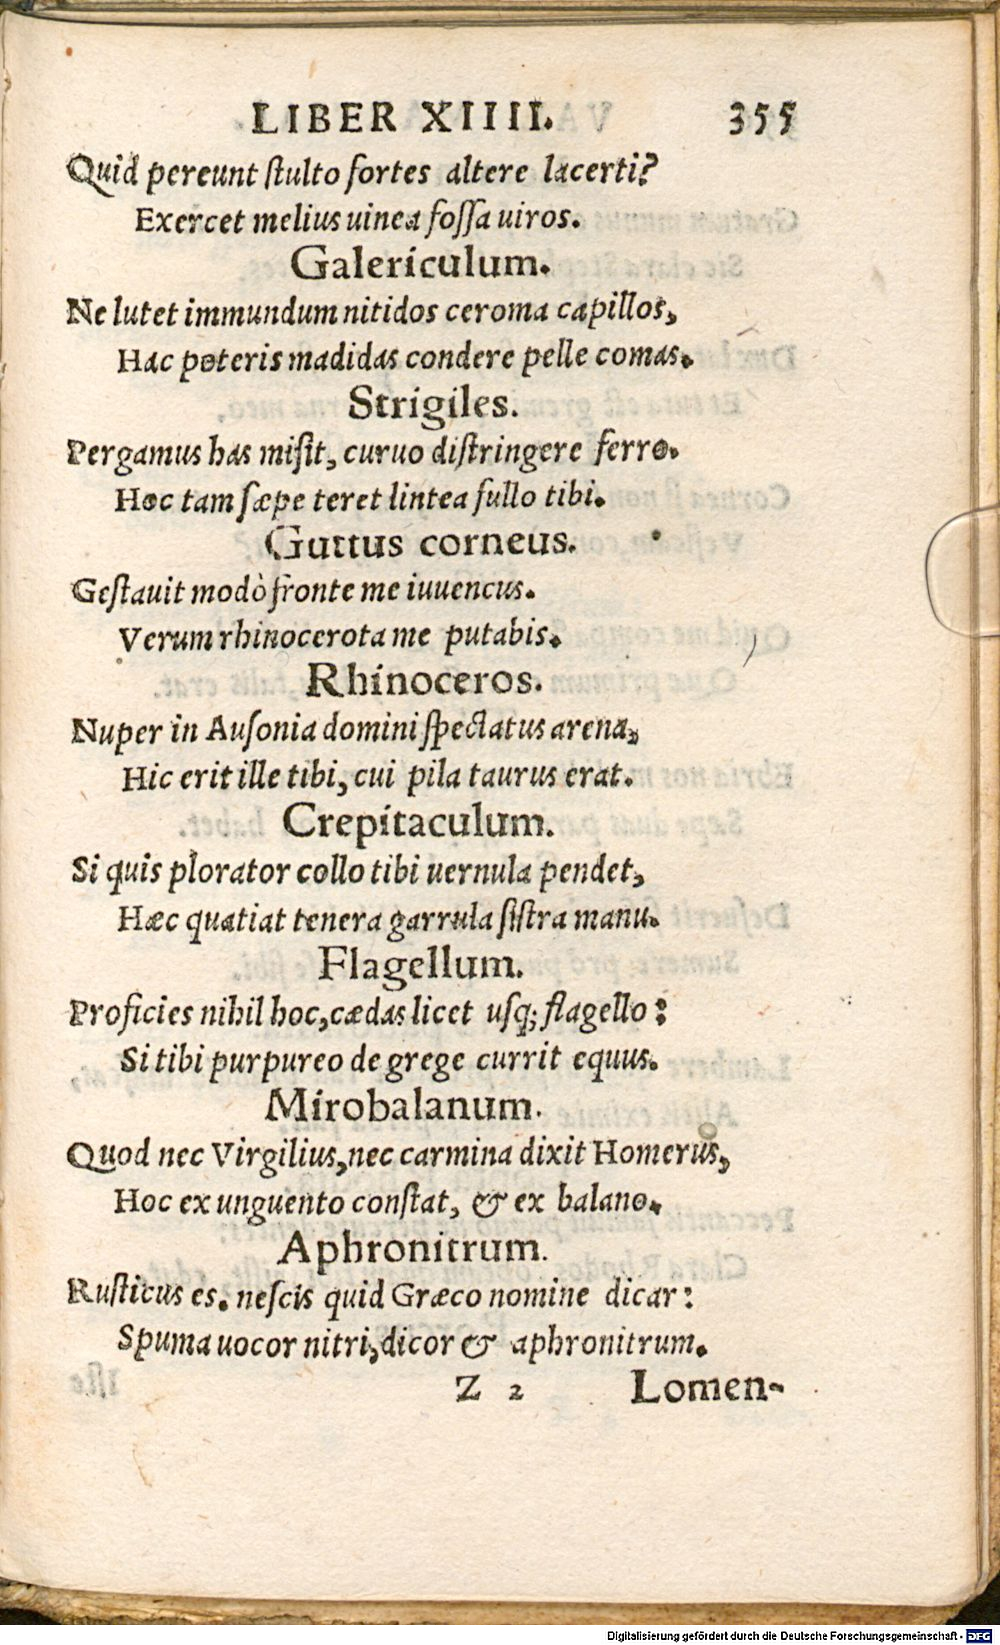 LIBER XIIII. 355
Quid pereunt stulto fortes altere lacerti?
Exercet melius uinea fossa uiros.
Galericulum.
Ne lutet immundum nitidos ceroma capillos,
Hac poteris madidas condere pelle comas.
Strigiles.
Pergamus has misit, curuo distringere ferro.
Hoc tam sæpe teret lintea fullo tibi.
Guttus corneus.
Gestauit modò fronte me iuuencus.
Verum rhinocerota me putabis.
Rhinoceros.
Nuper in Ausonia domini spectatus arena,
Hic erit ille tibi, cui pila taurus erat.
Crepitaculum.
Si quis plorator collo tibi uernula pendet,
Hæc quatiat tenera garrula sistra manu.
Flagellum.
Proficies nihil hoc, cædas licet usq; flagello:
Si tibi purpureo de grege currit equus.
Mirobalanum.
Quod nec Virgilius, nec carmina dixit Homerus,
Hoc ex unguento constat, & ex balano.
Aphronitrum.
Rusticus es. nescis quid Græco nomine dicar:
Spuma uocor nitri, dicor & aphronitrum.
Z 2 Lomen-
Digitalisierung gefördert durch die Deutsche Forschungsgemeinschaft - DFG